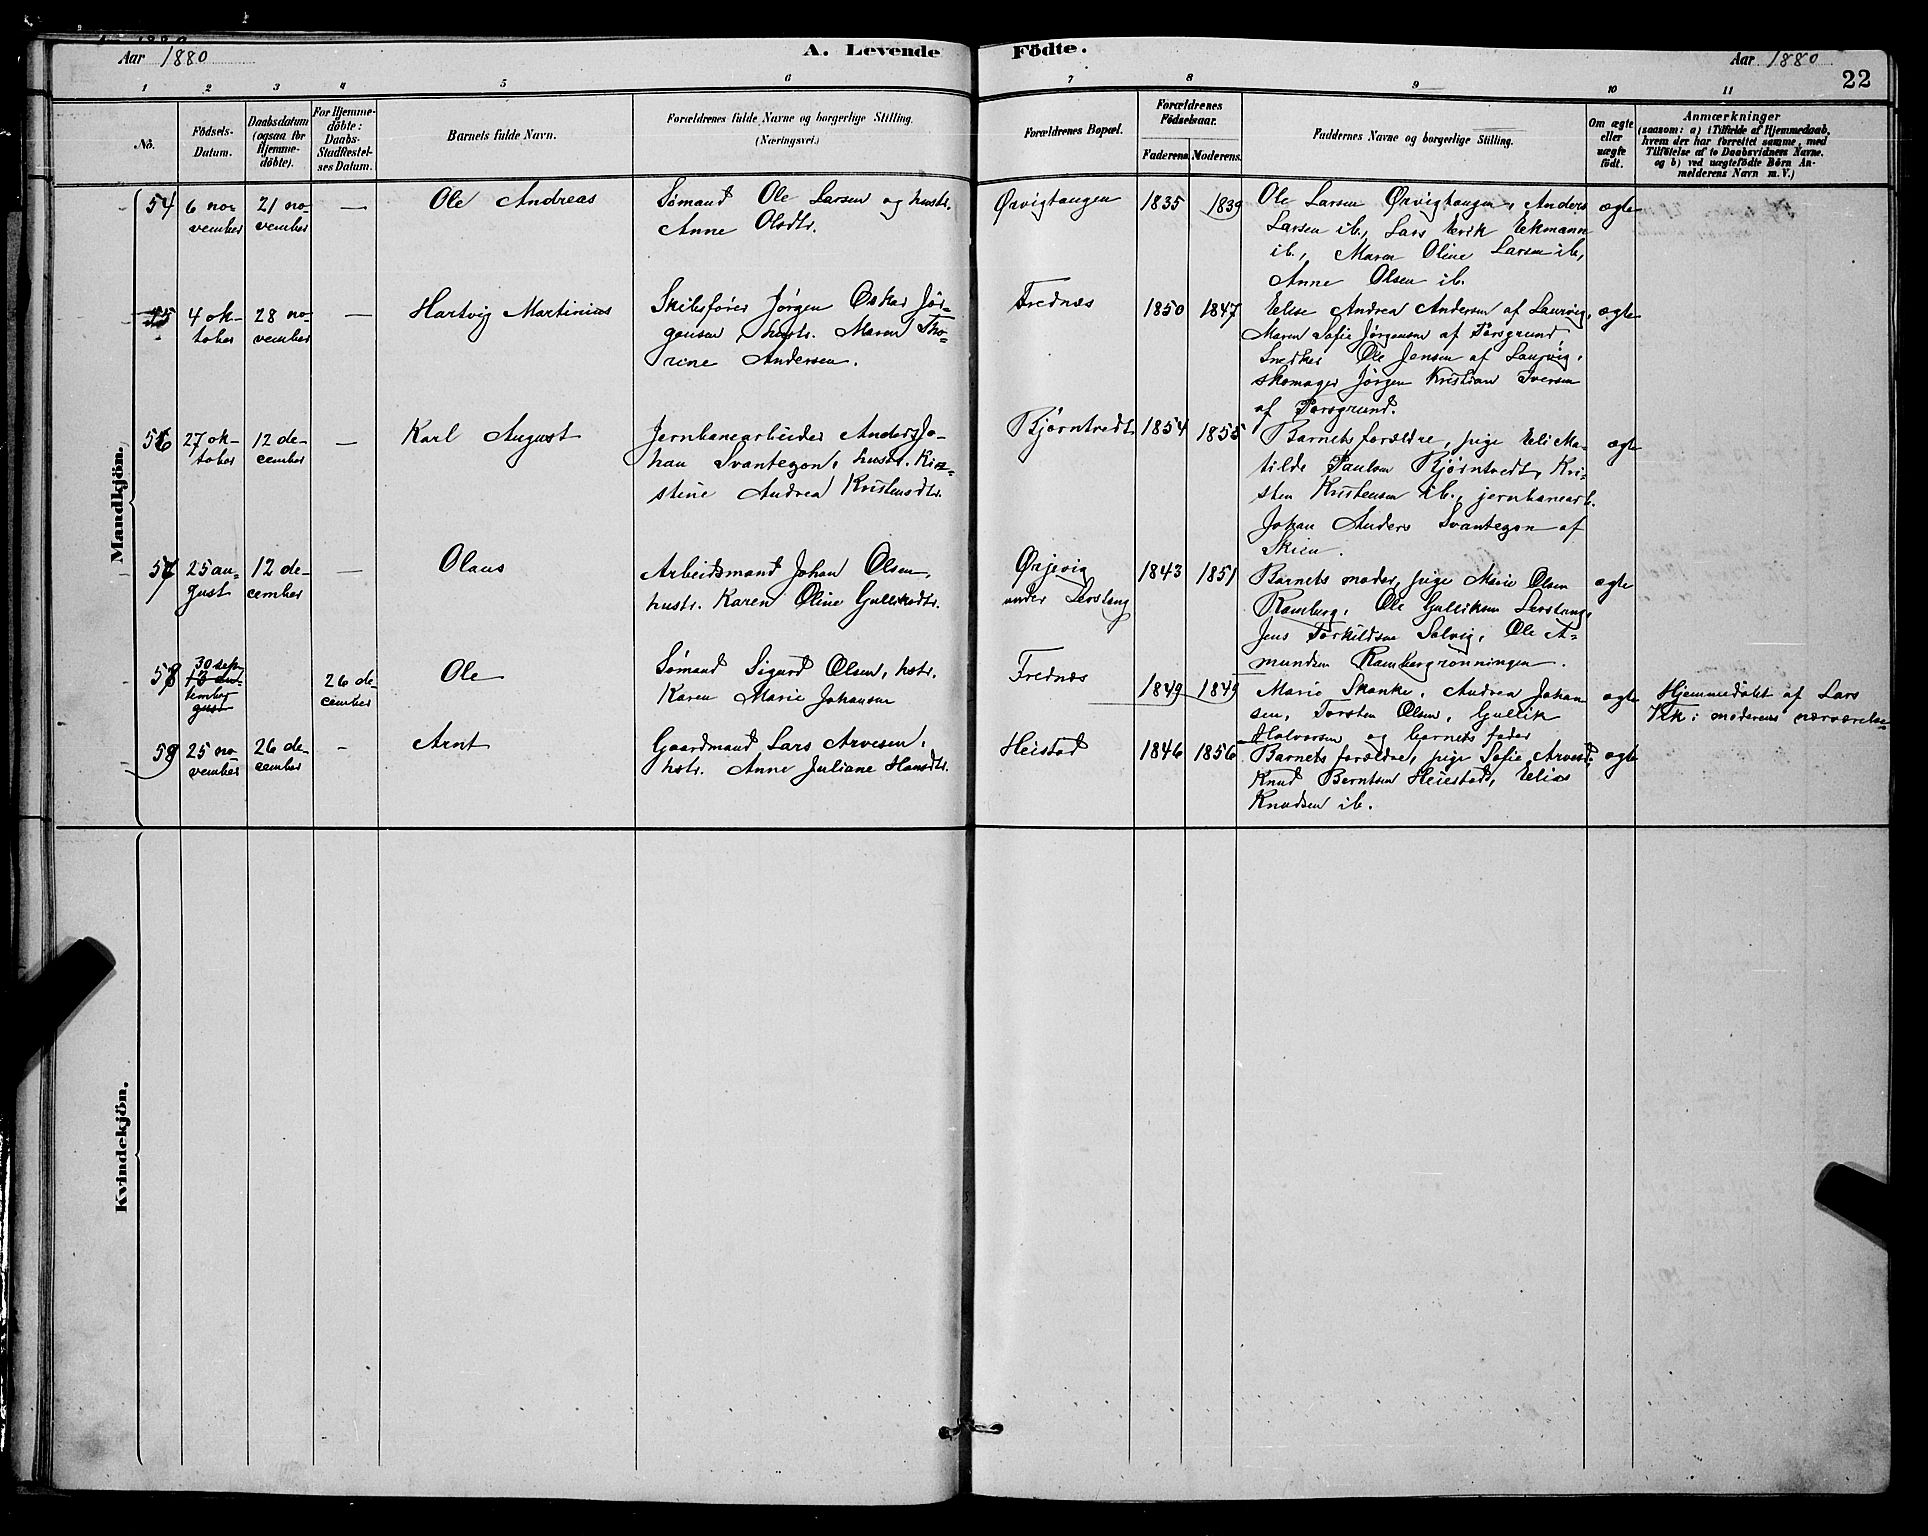 Aar 1880
A. Levende
Födte.
Aar 1880
22
1 2 3 4 5 6 7 8 9 10 11
No.
Födsels-
Datum.
Daabsdatum
(ogsaa for
Hjemme-
döbte).
For Hjemme-
döbte:
Daabs-
Stadfæstel-
ses Datum.
Barnets fulde Navn.
Forældrenes fulde Navne og borgerlige Stilling.
(Næringsvei.)
Forældrenes Bopæl.
Forældrenes
Födselsaar.
Faderens. Moderens.
Faddernes Navne og borgerlige Stilling.
Om ægte
eller
uægte
födt.
Anmærkninger
(saasom: a) i Tilfælde af Hjemmedaab,
hvem der har forrettet samme, med
Tilföielse af to Daabsvidners Navne.
og b) ved uægtefödte Börn An-
melderens Navn m. V.)
Mandkjön.
54
6 no-
vember
21 no
vember
—
Ole Andreas
Sømand Ole Larsen og hustr.
Anne Olsdtr.
Ørvigtangen
1835
1839
Ole Larsen Ørvigtangen, Anders
Larsen ib., Lars Erik Ekmann
ib., Maren Oline Larsen ib,
Anne Olsen ib.
ægte
55
4 ok-
tober
28 no
vember
—
Hartvig Martinius
Skibsfører Jørgen Oskar Jør-
gensen, hustr. Maren Tho-
rine Andersen.
Frednæs
1850
1847
Elise Andrea Andersen af Laurvig,
Maren Sofie Jørgensen af Porsgrund,
Snedker Ole Jensen af Laurvig,
skomager Jørgen Kristian Iversen
af Porsgrund.
ægte
56
27 ok-
tober
12 de-
cember
—
Karl August
Jernbanearbeider Anders Jo-
han Svantegon, hustr. Kir-
stine Andrea Kristensdtr.
Bjørntvedt
1854
1855
Barnets forældre, pige Eli Ma-
tilde Paulsen Bjørntvedt, Kri-
sten Kristensen ib., jernbanearb.
Johan Anders Svantegon af
Skien.
ægte
57
25 au-
gust
12 de-
cember
—
Olaus
Arbeidsmand Johan Olsen,
hustr. Karen Oline Gulliksdtr.
Ørjevig
under Lerstang
1843
1851
Barnets moder, pige Marie Olsen
Ramberg, Ole Gulliksen Lerstang,
Jens Torkildsen Solvig, Ole A-
mundsen Rambergrønningen.
ægte
58
30 sep-
tember
26 de-
cember
Ole
Sømand Sigurd Olsen, hstr.
Karen Marie Johansen
Frednæs
1849
1849
Marie Skanke, Andrea Johan
sen, Torsten Olsen, Gullik
Halvorsen og barnets fader
ægte
Hjemmedøbt af Lars
Vik i moderens nærværelse
59
25 no
vember
26 de-
cember
-
Arnt
Gaardmand Lars Arvesen,
hstr. Anne Juliane Hansdtr.
Heistad
1846
1856
Barnets forældre, pige Sofie Arvesd.
Knud Berntsen Heiestad, Elias
Knudsen ib.
ægte
Kvindekjön.